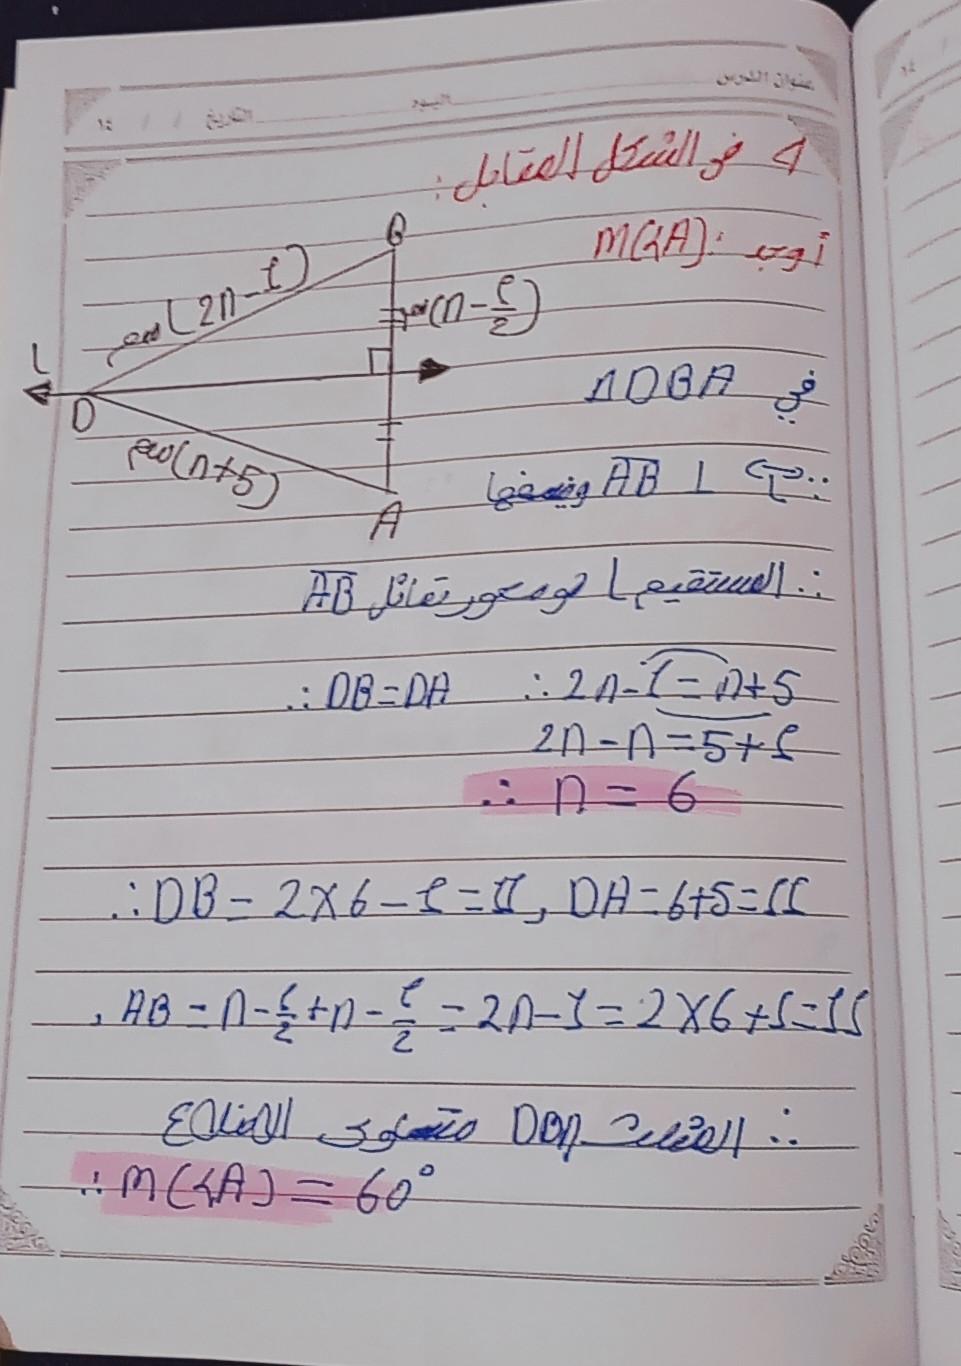 عنوان الدرس اليوم التاريخ / / ١٤
في الشكل المقابل:
أوجد: m(∢A)
B
(2n-1) سم
سم (n-1/2)
L
D
(n+5) سم
A
في ΔDBA
∵ L ⊥ AB وينصفها
∴ المستقيم L هو محور تماثل AB
∴ DB=DA ∴ 2n-1=n+5
2n-n=5+1
∴ n=6
∴ DB=2×6-1=11, DA=6+5=11
, AB=n-1/2+n-1/2=2n-1=2×6+1=11
∴ المثلث DBA متساوى الاضلاع
∴ m(∢A)=60°